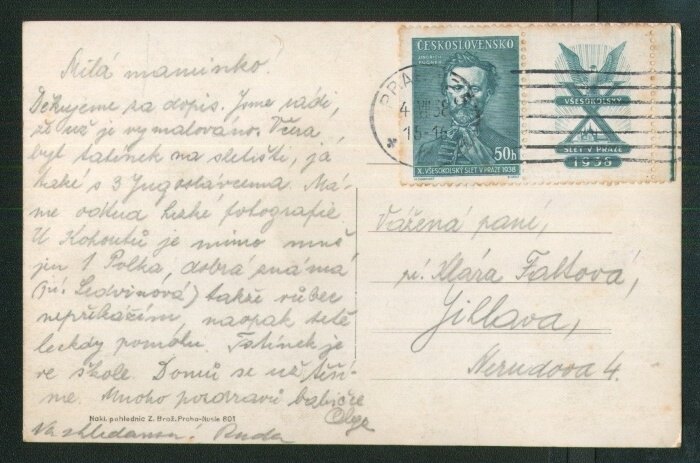 Milá maminko!
Děkujeme za dopis. Jsme rádi,
že už je vymalováno. Včera
byl tatínek na sletišti, já
také s 3 Jugoslávcema. Má-
me odtud hezké fotografie.
U Kohoutů je mimo mně
jen 1 Polka, dobrá známá
(pí. Ledvinová) takže vůbec
nepřekážím, naopak tetě
leckdy pomohu. Tatínek je
ve škole. Domů se už těší-
me. Mnoho pozdravů babičce
Olga
Nakl. pohlednic Z. Brož, Praha-Nusle 801
Na shledanou! Ruda
ČESKOSLOVENSKO
JINDŘICH
FÜGNER
50h
X. VŠESOKOLSKÝ SLET V PRAZE 1938
VŠESOKOLSKÝ
X
SLET V PRAZE
1938
PRAHA
4 VII 38
15-16
Vážená paní,
pí. Klára Faltová,
Jihlava,
Nerudova 4.